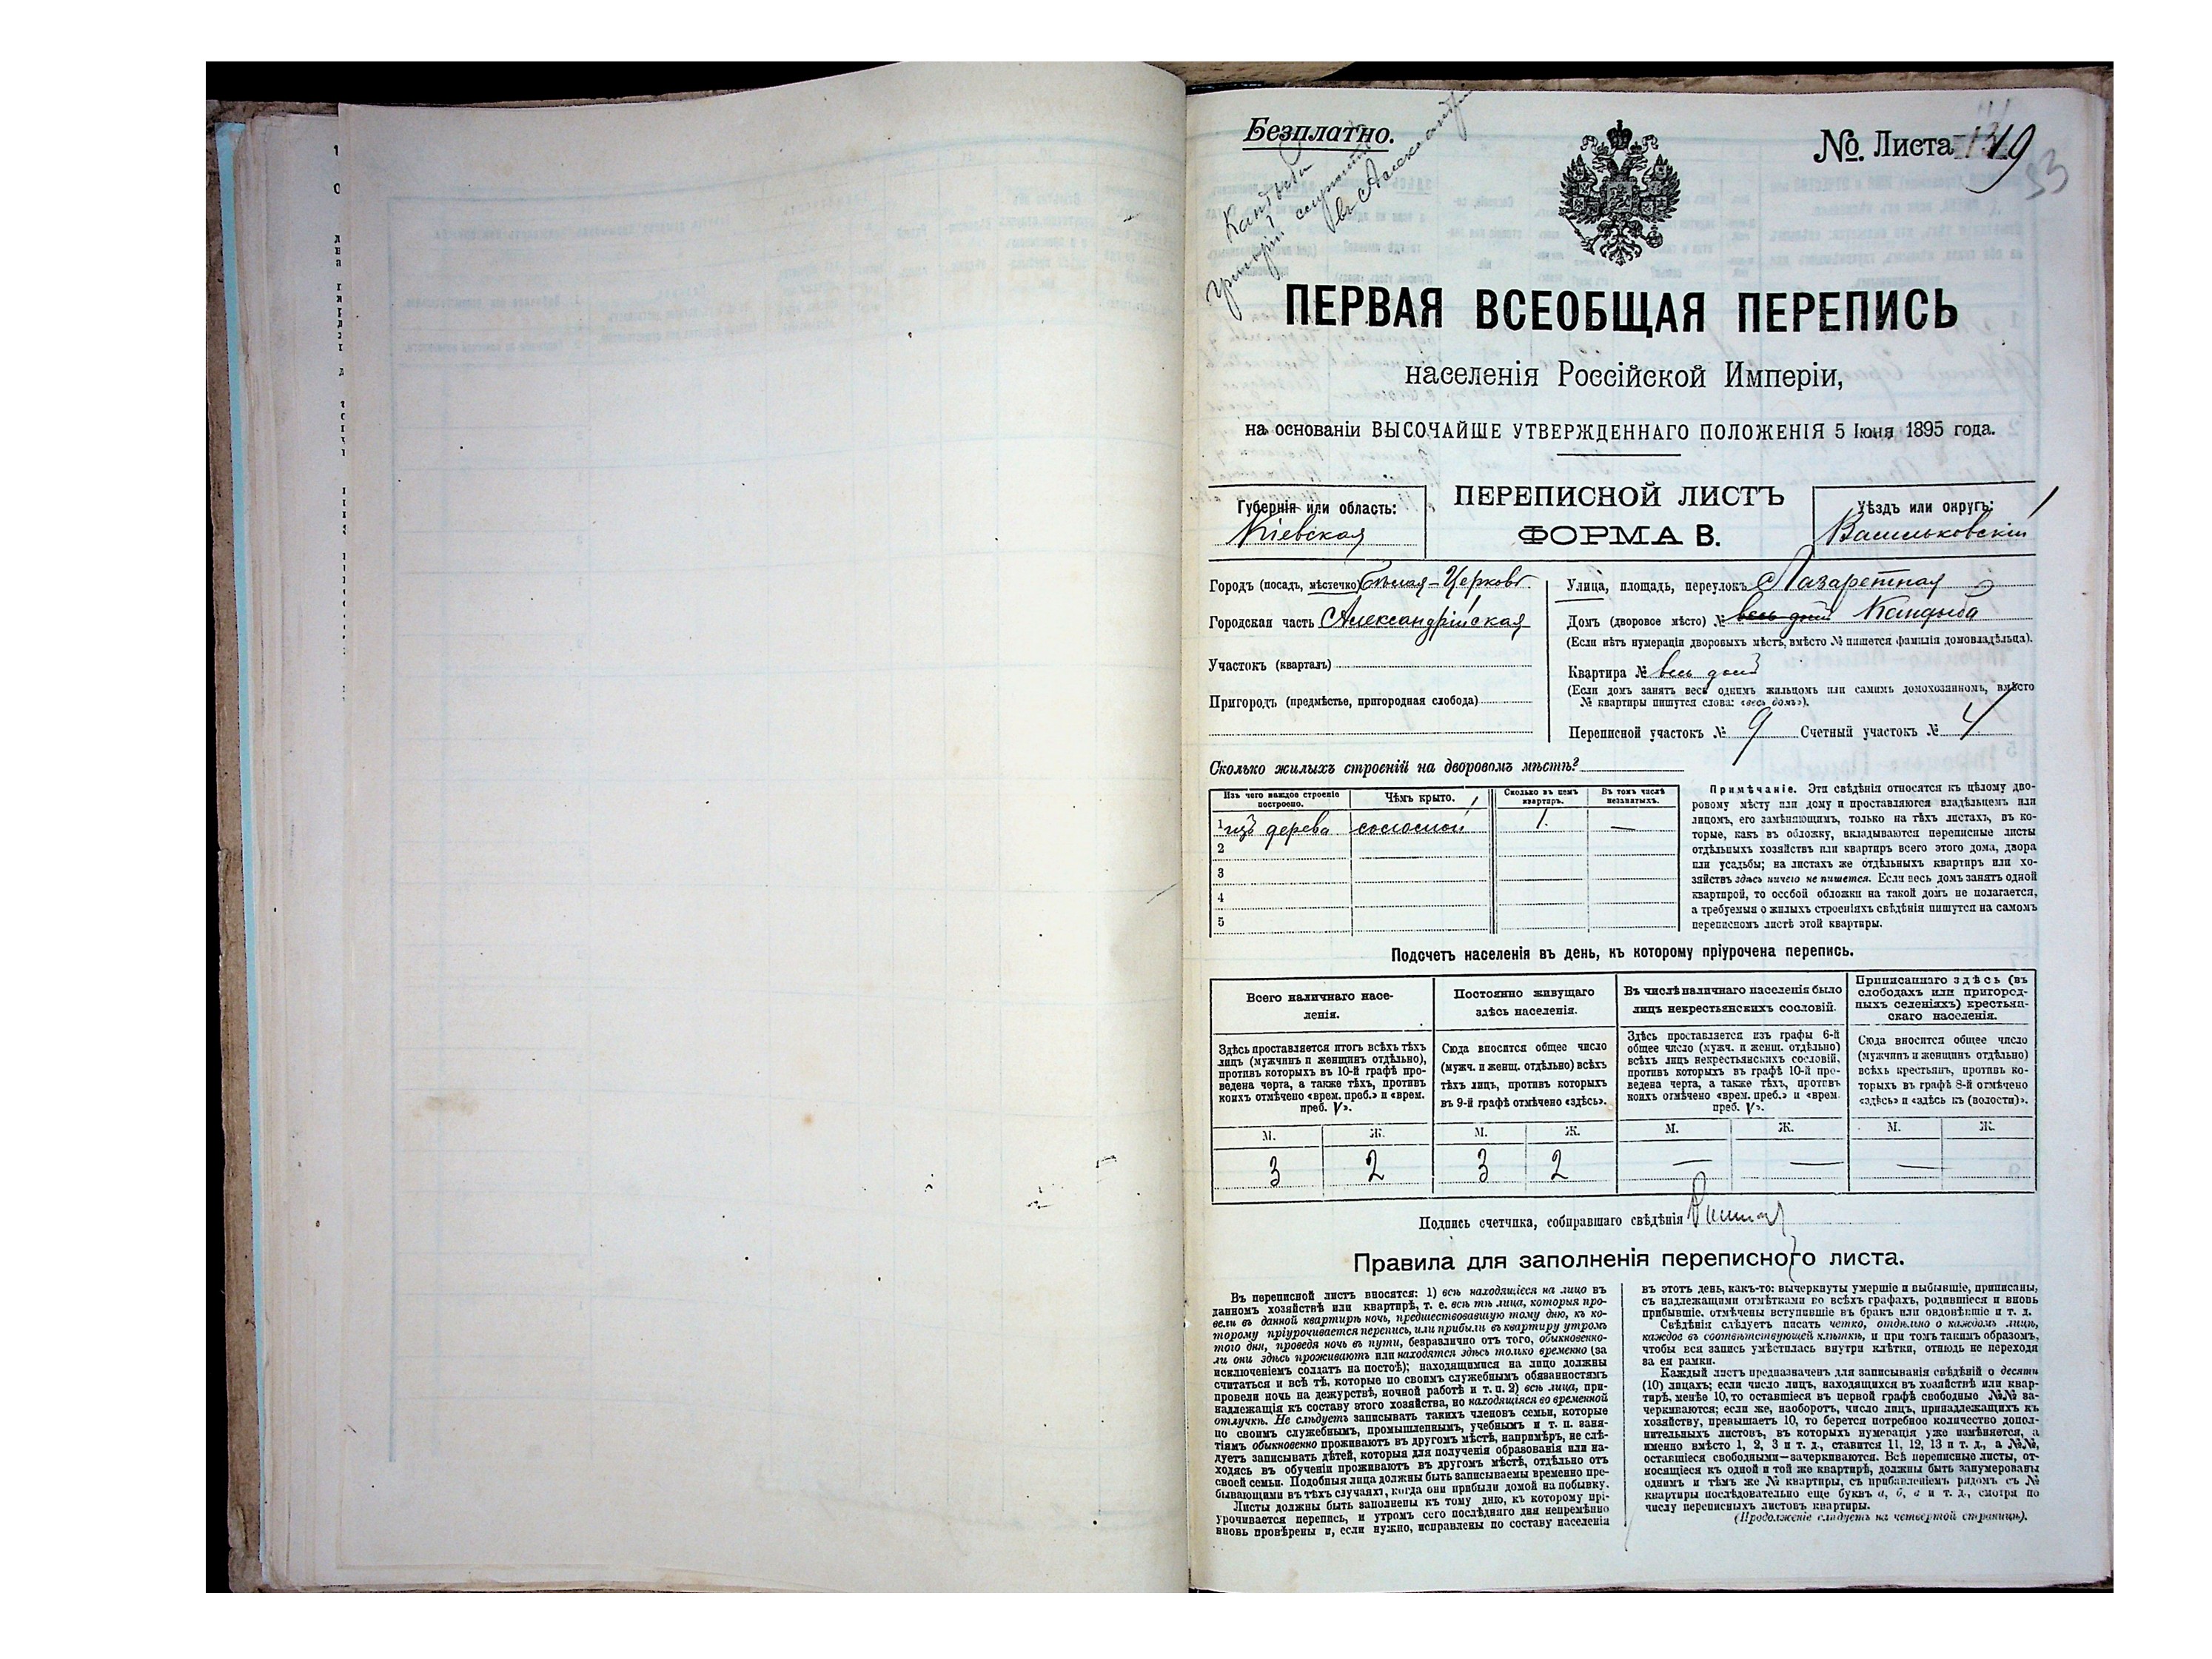 Безплатно.
№. Листа 149
53
Кандыба
Григорій
въ Александрі
ПЕРВАЯ ВСЕОБЩАЯ ПЕРЕПИСЬ
населенія Россійской Имперіи,
на основаніи ВЫСОЧАЙШЕ УТВЕРЖДЕННАГО ПОЛОЖЕНІЯ 5 Іюня 1895 года.
Губернія или область:
Кіевская
ПЕРЕПИСНОЙ ЛИСТЪ
ФОРМА В.
Уѣздъ или округъ:
Васильковскій
Городъ (посадъ, мѣстечко) Бѣлая-Церковь
Городская часть Александрійская
Участокъ (кварталъ)
Пригородъ (предмѣстье, пригородная слобода)
Улица, площадь, переулокъ Лазаретная
Домъ (дворовое мѣсто) № весь домъ Кандыба
(Если нѣтъ нумераціи дворовыхъ мѣстъ, вмѣсто № пишется фамилія домовладѣльца).
Квартира № весь домъ
(Если домъ занятъ весь однимъ жильцомъ или самимъ домохозяиномъ, вмѣсто
№ квартиры пишутся слова: «весь домъ»).
Переписной участокъ № 9 Счетный участокъ № 4
Сколько жилыхъ строеній на дворовомъ мѣстѣ?
Изъ чего каждое строеніе построено.
Чѣмъ крыто.
Сколько въ немъ квартиръ.
Въ томъ числѣ незанятыхъ.
1 изъ дерева соломой 1. —
2
3
4
5
Примѣчаніе. Эти свѣдѣнія относятся къ цѣлому дво-
ровому мѣсту или дому и проставляются владѣльцемъ или
лицомъ, его замѣняющимъ, только на тѣхъ листахъ, въ ко-
торые, какъ въ обложку, вкладываются переписные листы
отдѣльныхъ хозяйствъ или квартиръ всего этого дома, двора
или усадьбы; на листахъ же отдѣльныхъ квартиръ или хо-
зяйствъ здѣсь ничего не пишется. Если весь домъ занятъ одной
квартирой, то особой обложки на такой домъ не полагается,
а требуемыя о жилыхъ строеніяхъ свѣдѣнія пишутся на самомъ
переписномъ листѣ этой квартиры.
Подсчетъ населенія въ день, къ которому пріурочена перепись.
Всего наличнаго насе-
ленія.
Здѣсь проставляется итогъ всѣхъ тѣхъ
лицъ (мужчинъ и женщинъ отдѣльно),
противъ которыхъ въ 10-й графѣ про-
ведена черта, а также тѣхъ, противъ
коихъ отмѣчено «врем. преб.» и «врем.
преб. V».
Постоянно живущаго
здѣсь населенія.
Сюда вносится общее число
(мужч. и женщ. отдѣльно) всѣхъ
тѣхъ лицъ, противъ которыхъ
въ 9-й графѣ отмѣчено «здѣсь».
Въ числѣ наличнаго населенія было
лицъ некрестьянскихъ сословій.
Здѣсь проставляется изъ графы 6-й
общее число (мужч. и женщ. отдѣльно)
всѣхъ лицъ некрестьянскихъ сословій,
противъ которыхъ въ графѣ 10-й про-
ведена черта, а также тѣхъ, противъ
коихъ отмѣчено «врем. преб.» и «врем.
преб. V».
Приписаннаго здѣсь (въ
слободахъ или пригород-
ныхъ селеніяхъ) крестьян-
скаго населенія.
Сюда вносится общее число
(мужчинъ и женщинъ отдѣльно)
всѣхъ крестьянъ, противъ ко-
торыхъ въ графѣ 8-й отмѣчено
«здѣсь» и «здѣсь къ (волости)».
М. Ж. М. Ж. М. Ж. М. Ж.
3 2 3 2 — — —
Подпись счетчика, собиравшаго свѣдѣнія
Правила для заполненія переписного листа.
Въ переписной листъ вносятся: 1) всѣ находящіеся на лицо въ
данномъ хозяйствѣ или квартирѣ, т. е. всѣ тѣ лица, которыя про-
вели въ данной квартирѣ ночь, предшествовавшую тому дню, къ ко-
торому пріурочивается перепись, или прибыли въ квартиру утромъ
того дня, проведя ночь въ пути, безразлично отъ того, обыкновенно-
ли они здѣсь проживаютъ или находятся здѣсь только временно (за
исключеніемъ солдатъ на постоѣ); находящимися на лицо должны
считаться и всѣ тѣ, которые по своимъ служебнымъ обязанностямъ
провели ночь на дежурствѣ, ночной работѣ и т. п. 2) всѣ лица, при-
надлежащія къ составу этого хозяйства, но находящіяся во временной
отлучкѣ. Не слѣдуетъ записывать такихъ членовъ семьи, которые
по своимъ служебнымъ, промышленнымъ, учебнымъ и т. п. заня-
тіямъ обыкновенно проживаютъ въ другомъ мѣстѣ, напримѣръ, не слѣ-
дуетъ записывать дѣтей, которыя для полученія образованія или на-
ходясь въ обученіи проживаютъ въ другомъ мѣстѣ, отдѣльно отъ
своей семьи. Подобныя лица должны быть записываемы временно пре-
бывающими въ тѣхъ случаяхъ, когда они прибыли домой на побывку.
Листы должны быть заполнены къ тому дню, къ которому прі-
урочивается перепись, и утромъ сего послѣдняго дня непремѣнно
вновь провѣрены и, если нужно, исправлены по составу населенія
въ этотъ день, какъ-то: вычеркнуты умершіе и выбывшіе, приписаны,
съ надлежащими отмѣтками во всѣхъ графахъ, родившіеся и вновь
прибывшіе, отмѣчены вступившіе въ бракъ или овдовѣвшіе и т. д.
Свѣдѣнія слѣдуетъ писать четко, отдѣльно о каждомъ лицѣ,
каждое въ соотвѣтствующей клѣткѣ, и при томъ такимъ образомъ,
чтобы вся запись умѣстилась внутри клѣтки, отнюдь не переходя
за ея рамки.
Каждый листъ предназначенъ для записыванія свѣдѣній о десяти
(10) лицахъ; если число лицъ, находящихся въ хозяйствѣ или квар-
тирѣ, менѣе 10, то оставшіеся въ первой графѣ свободные №№ за-
черкиваются; если же, наоборотъ, число лицъ, принадлежащихъ къ
хозяйству, превышаетъ 10, то берется потребное количество допол-
нительныхъ листовъ, въ которыхъ нумерація уже измѣняется, а
именно вмѣсто 1, 2, 3 и т. д., ставится 11, 12, 13 и т. д., а №№,
оставшіеся свободными—зачеркиваются. Всѣ переписные листы, от-
носящіеся къ одной и той же квартирѣ, должны быть занумерованы
однимъ и тѣмъ же № квартиры, съ прибавленіемъ рядомъ съ №
квартиры послѣдовательно еще буквъ а, б, в и т. д., смотря по
числу переписныхъ листовъ квартиры.
(Продолженіе слѣдуетъ на четвертой страницѣ).